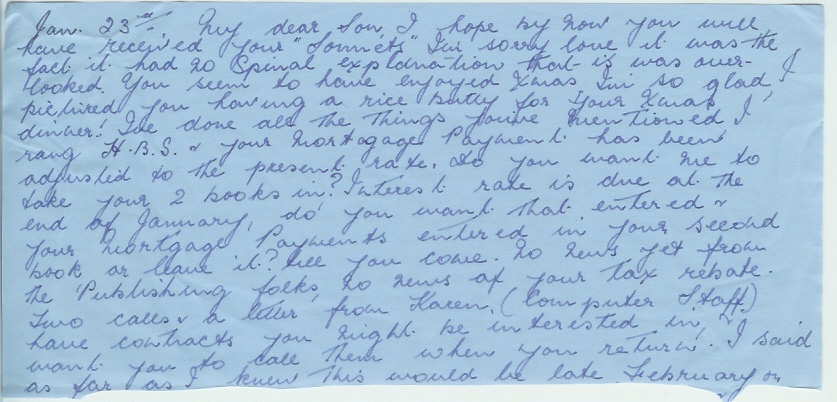 Jan. 23rd My dear Son, I hope by now you will
have received your "Sonnets" I'm sorry love it was the
fact it had no Spinal explanation that is was over-
looked. You seem to have enjoyed Xmas I'm so glad, I
pictured you having a rice butty for your Xmas
dinner! I've done all the things you've mentioned I
rang H.B.S. & your Mortgage Payment has been
adjusted to the present rate. Do you want me to
take your 2 books in? Interest rate is due at the
end of January, do you want that entered &
your Mortgage Payments entered in your second
book or leave it? till you come. No news yet from
the 'Publishing folks, no news of your tax rebate.
Two calls & a letter from Karen. (Computer Staff)
have contracts you might be interested in, &
want you to call them when you return. I said
as far as I knew this would be late February or